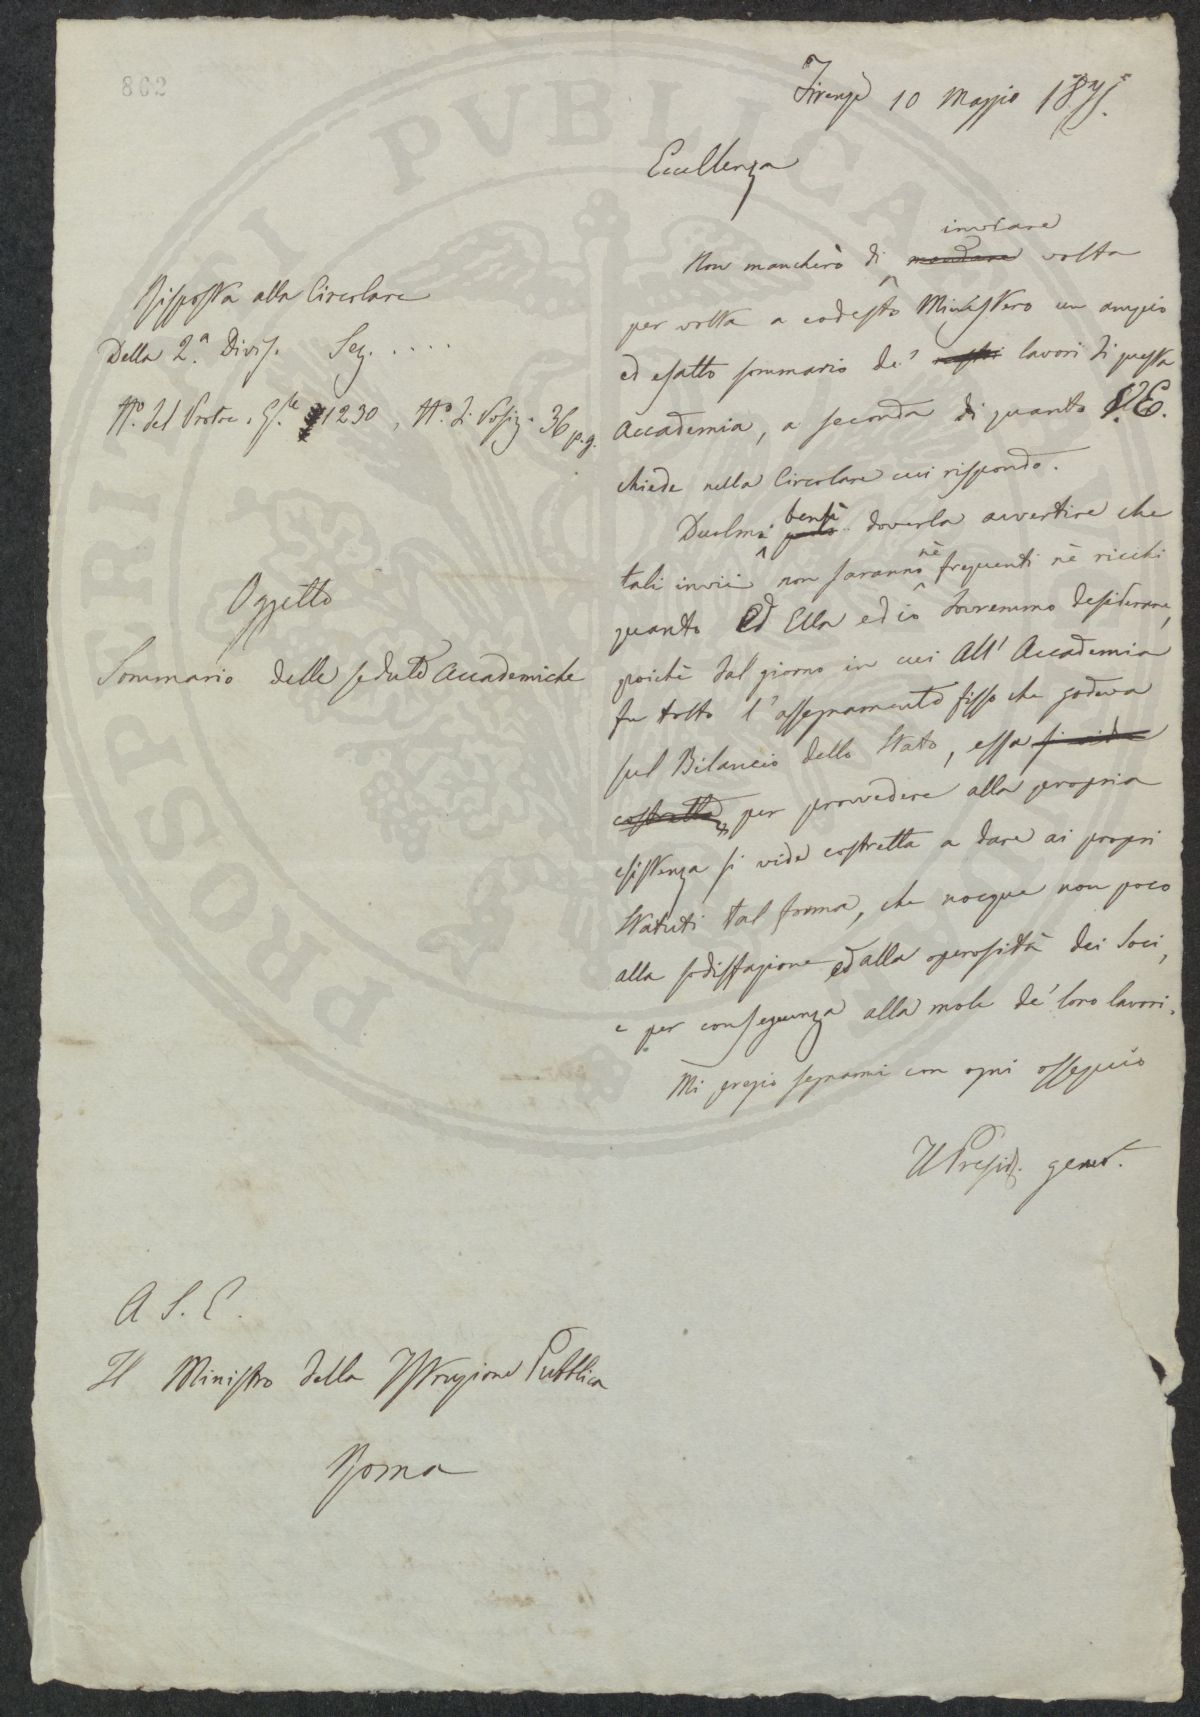 862
Firenze 10 Maggio 1875.
Eccellenza
inviare
Non mancherò di mandare volta
per volta a codesto Ministero un ampio
ed esatto sommario de' nostri lavori di questa
Accademia, a seconda di quanto V.E.
chiede nella Circolare cui rispondo.
bensì
Duolmi doverla avvertire che
tali invii non saranno nè frequenti nè ricchi
quanto Ed Ella ed io dovremmo desiderare,
poichè dal giorno in cui All' Accademia
fu tolto l'assegnamento fisso che godeva
sul Bilancio dello Stato, essa si vide
costretta, per provvedere alla propria
esistenza si vide costretta a dare ai propri
Statuti tal forma, che nocque non poco
alla sodisfazione ed alla operosità dei Soci,
e per conseguenza alla mole de' loro lavori.
Mi pregio segnarmi con ogni ossequio
Il Presid. gener.
Risposta alla Circolare
Della 2.a Divis. Sez. . . . .
N.o del Protoc. G.le 1230, N.o di Posiz. 36 p.g.
Oggetto
Sommario delle sedute Accademiche
A S. E.
Il Ministro della Istruzione Pubblica
Roma